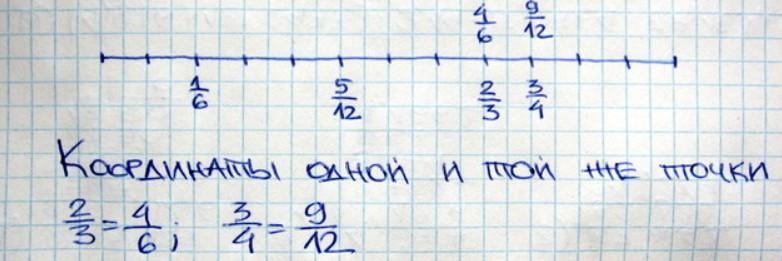 4/6 9/12
1/6 5/12 2/3 3/4
Координаты одной и той же точки
2/3 = 4/6; 3/4 = 9/12